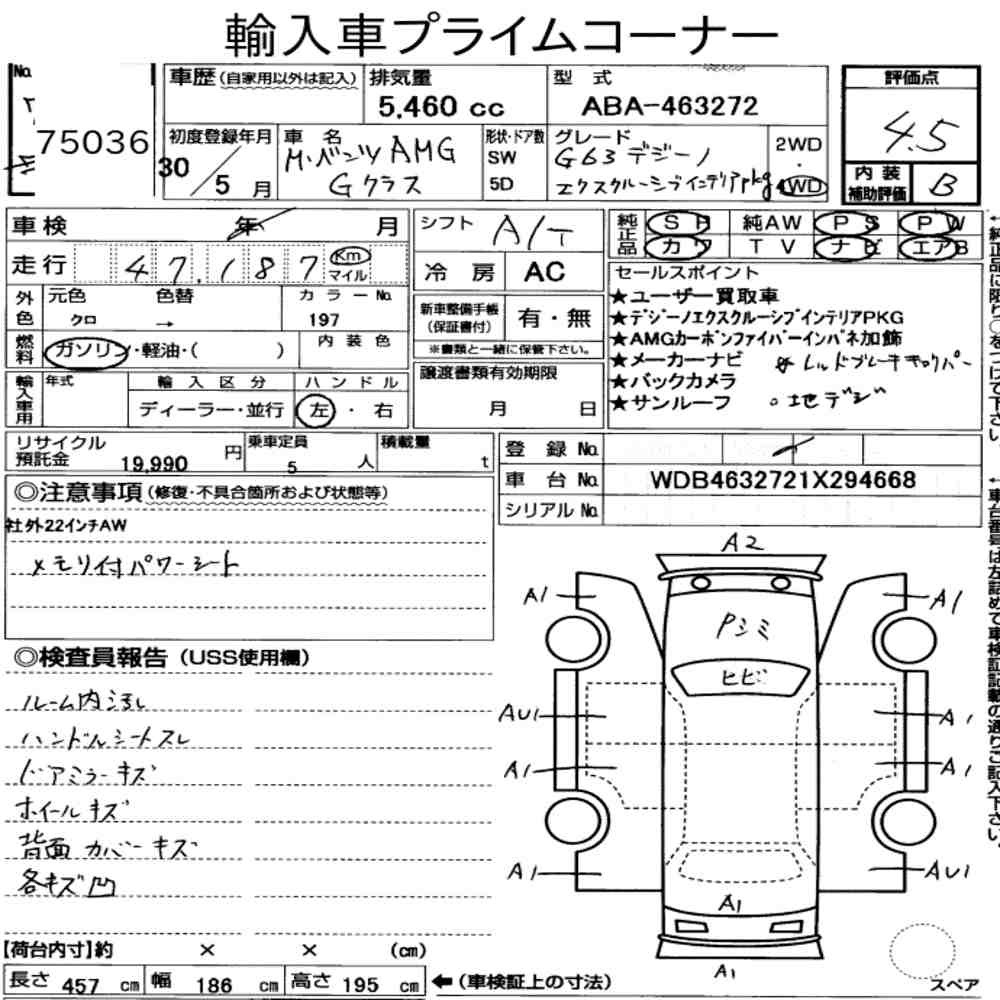 輸入車プライムコーナー
No.
75036
車歴 (自家用以外は記入)
排気量
5,460 cc
型式
ABA-463272
評価点
4.5
初度登録年月
30/5月
車名
M・ベンツ AMG
Gクラス
形状・ドア数
SW
5D
グレード
G63 デジーノ
エクスクルーシブインテリアpkg
2WD
・
4WD
内装
補助評価
B
車検 年 月
シフト A/T
純正品
SR 純AW PS PW
カワ TV ナビ エアB
走行 47,187 Km
マイル
冷房 AC
外色
元色 色替 カラーNo.
クロ → 197
燃料
ガソリン・軽油・( )
内装色
新車整備手帳
(保証書付)
有・無
※書類と一緒に保管下さい。
セールスポイント
★ユーザー買取車
★デジーノエクスクルーシブインテリアPKG
★AMGカーボンファイバーインパネ加飾
★メーカーナビ
☆レッドブレーキキャリパー
★バックカメラ
★サンルーフ
○地デジ
輸入車用
年式
輸入区分
ディーラー・並行
ハンドル
左・右
譲渡書類有効期限
月 日
リサイクル
預託金
19,990 円
乗車定員
5 人
積載量
t
登録No.
車台No. WDB4632721X294668
シリアルNo.
←純正品に限り○をつけて下さい。
←車台番号は左詰めで車検証記載の通りご記入下さい。
◎注意事項(修復・不具合箇所および状態等)
社外22インチAW
メモリ付パワーシート
◎検査員報告(USS使用欄)
ルーム内汚れ
ハンドルシートスレ
ドアミラーキズ
ホイールキズ
背面カバーキズ
各キズ凹
A2
A1
A1
Pシミ
ヒビ
AU1
A1
A1
A1
A1
AU1
A1
A1
スペア
【荷台内寸】約 × × (cm)
長さ 457 cm 幅 186 cm 高さ 195 cm ←(車検証上の寸法)